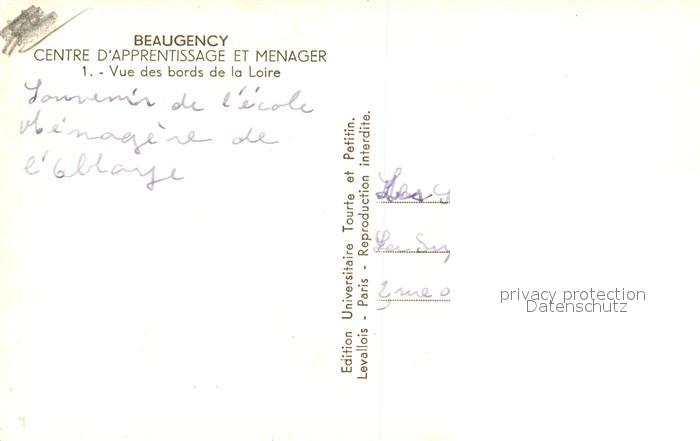 BEAUGENCY
CENTRE D'APPRENTISSAGE ET MENAGER
1. - Vue des bords de la Loire
Souvenir de l'école
Ménagère de
l'Abbaye
Edition Universitaire Tourte et Petitin.
Levallois - Paris - Reproduction interdite.
privacy protection
Datenschutz